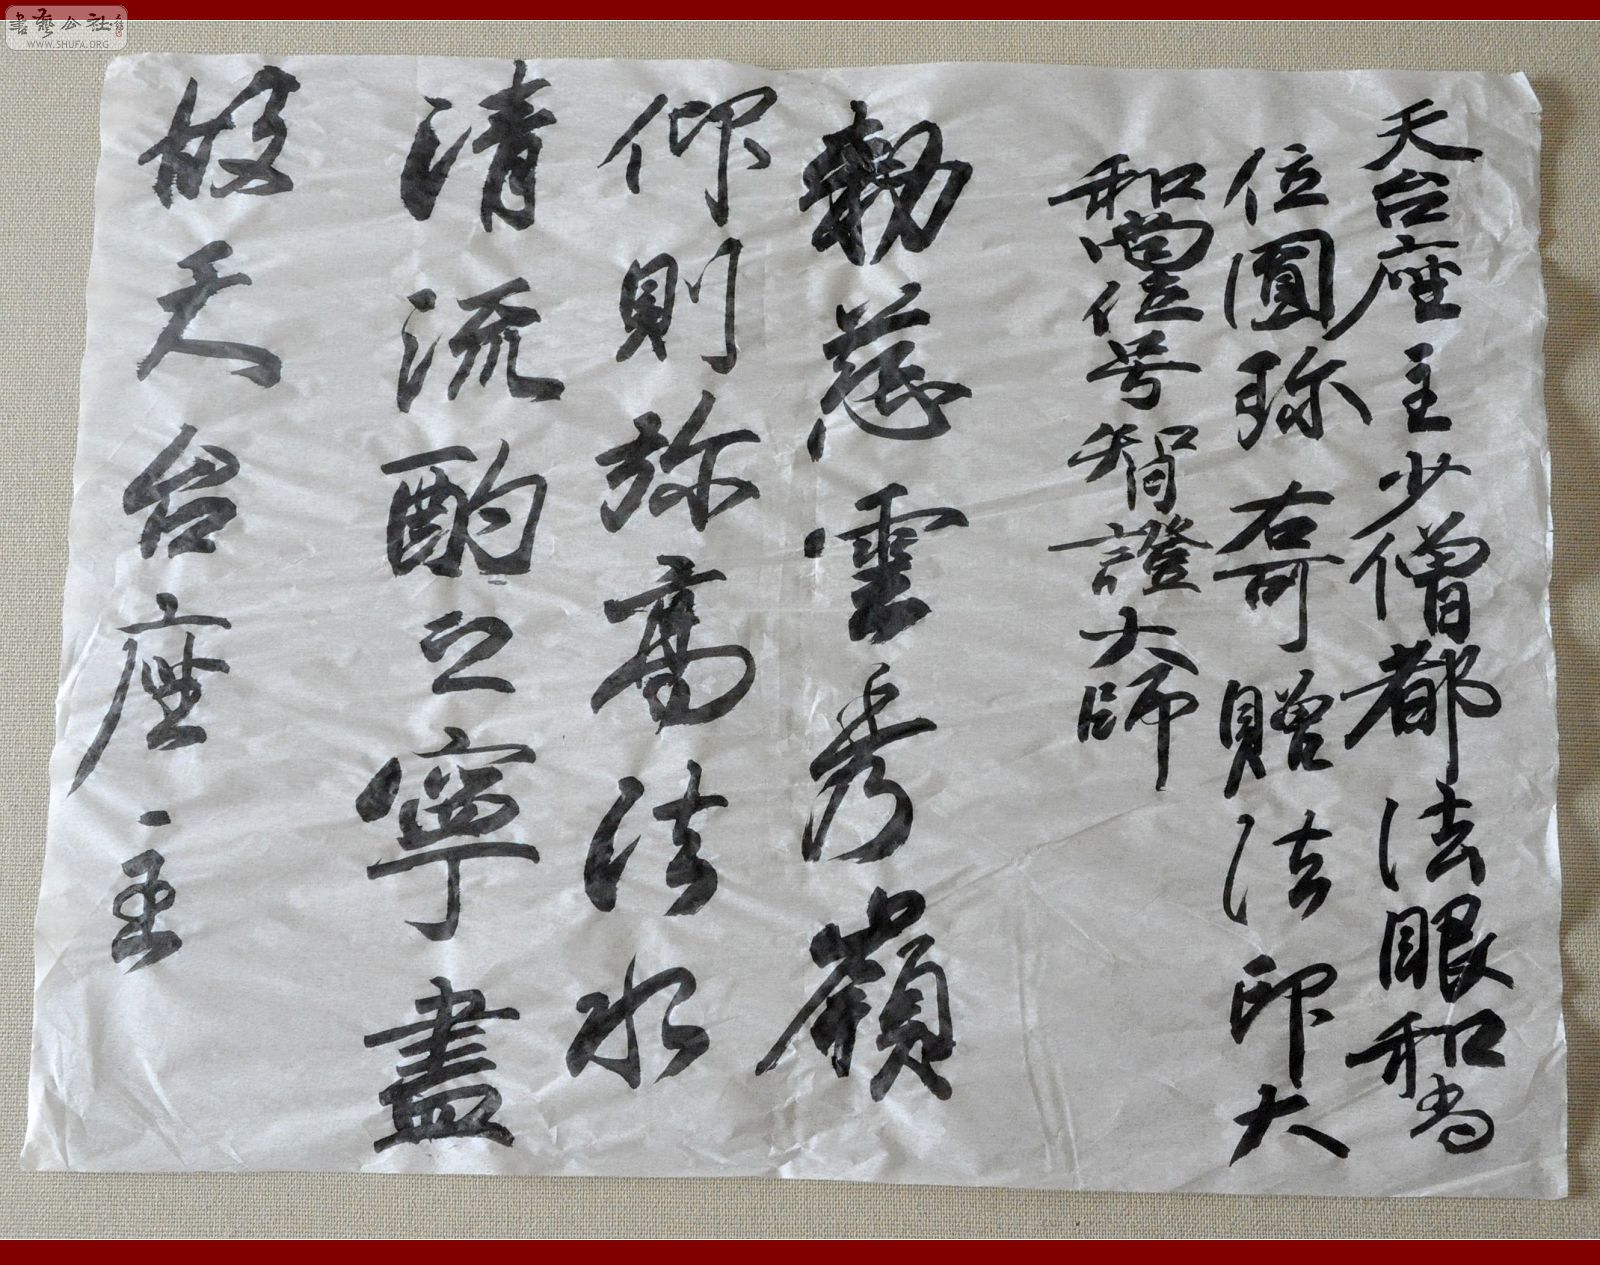 書藝公社
WWW.SHUFA.ORG
天台座主少僧都法眼和尚
位圓珎右可贈法印大
和尚位号智證大師
勅慈雲秀嶺
仰則弥高法水
清流酌之寧盡
故天台座主